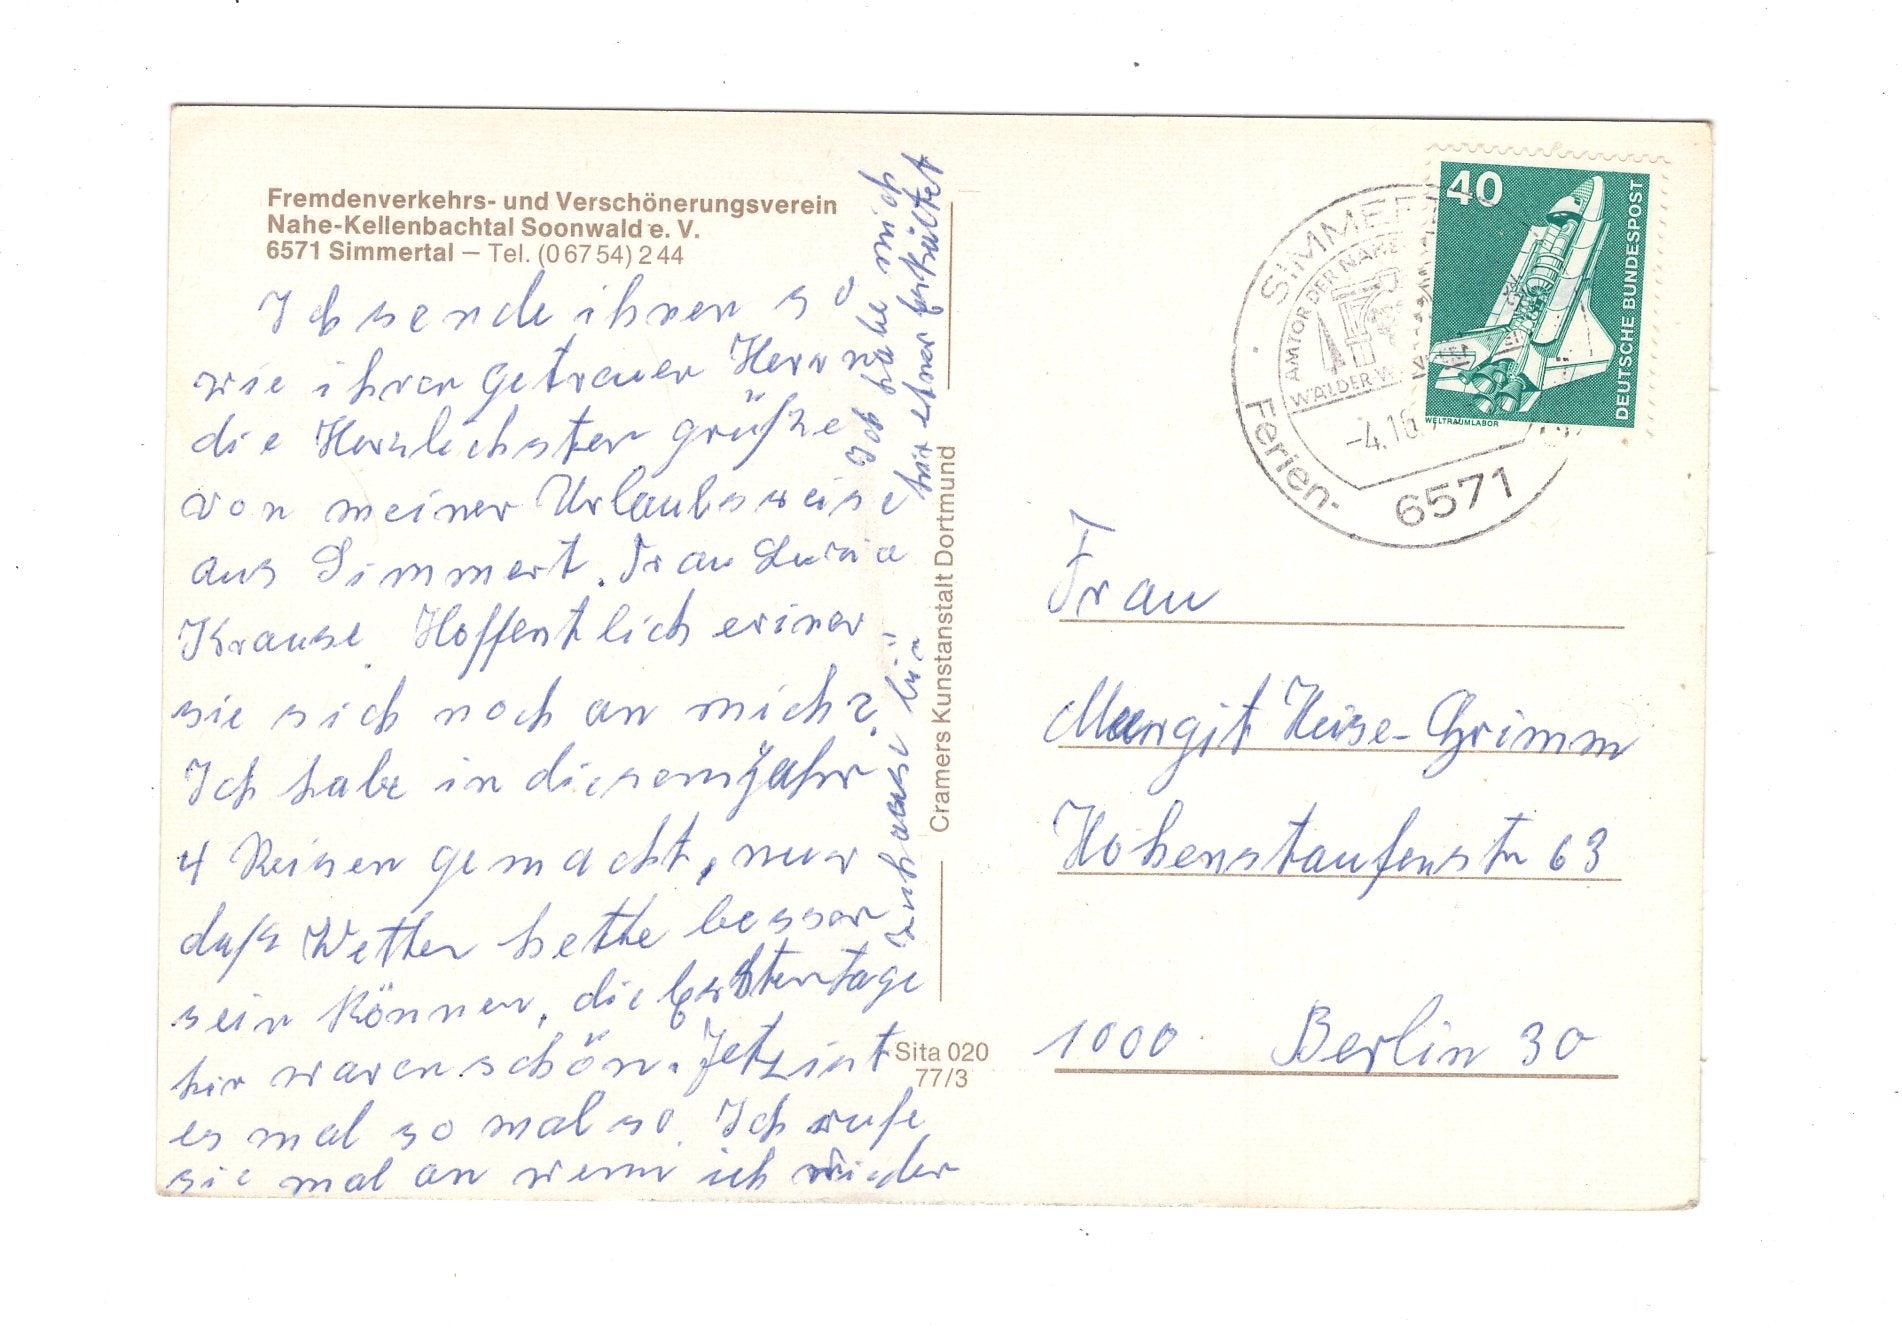 Fremdenverkehrs- und Verschönerungsverein
Nahe-Kellenbachtal Soonwald e. V.
6571 Simmertal – Tel. (0 67 54) 2 44
Ich sende ihnen so
wie ihrer getrauen Herr
die Herzlichsten grüße
von meiner Urlaubsreise
aus Simmert. Frau
Krause. Hoffentlich eriner
sie sich noch an mich?
Ich habe in diesem Jahr
4 Reisen gemacht, nur
daß Wetter hette besser
sein können, die ersten tage
hir waren schön. Jetz ist
es mal so mal so. Ich rufe
sie mal an wenn ich wieder
zuhause bin
Ich habe mich
hir etwas erkältet
Cramers Kunstanstalt Dortmund
Sita 020
77/3
SIMMER
AM TOR DER NAHE
WÄLDER
-4.10.
Ferien-
6571
40
DEUTSCHE BUNDESPOST
WELTRAUMLABOR
Frau
Margit Heise-Grimm
Hohenstaufenstr 63
1000 Berlin 30